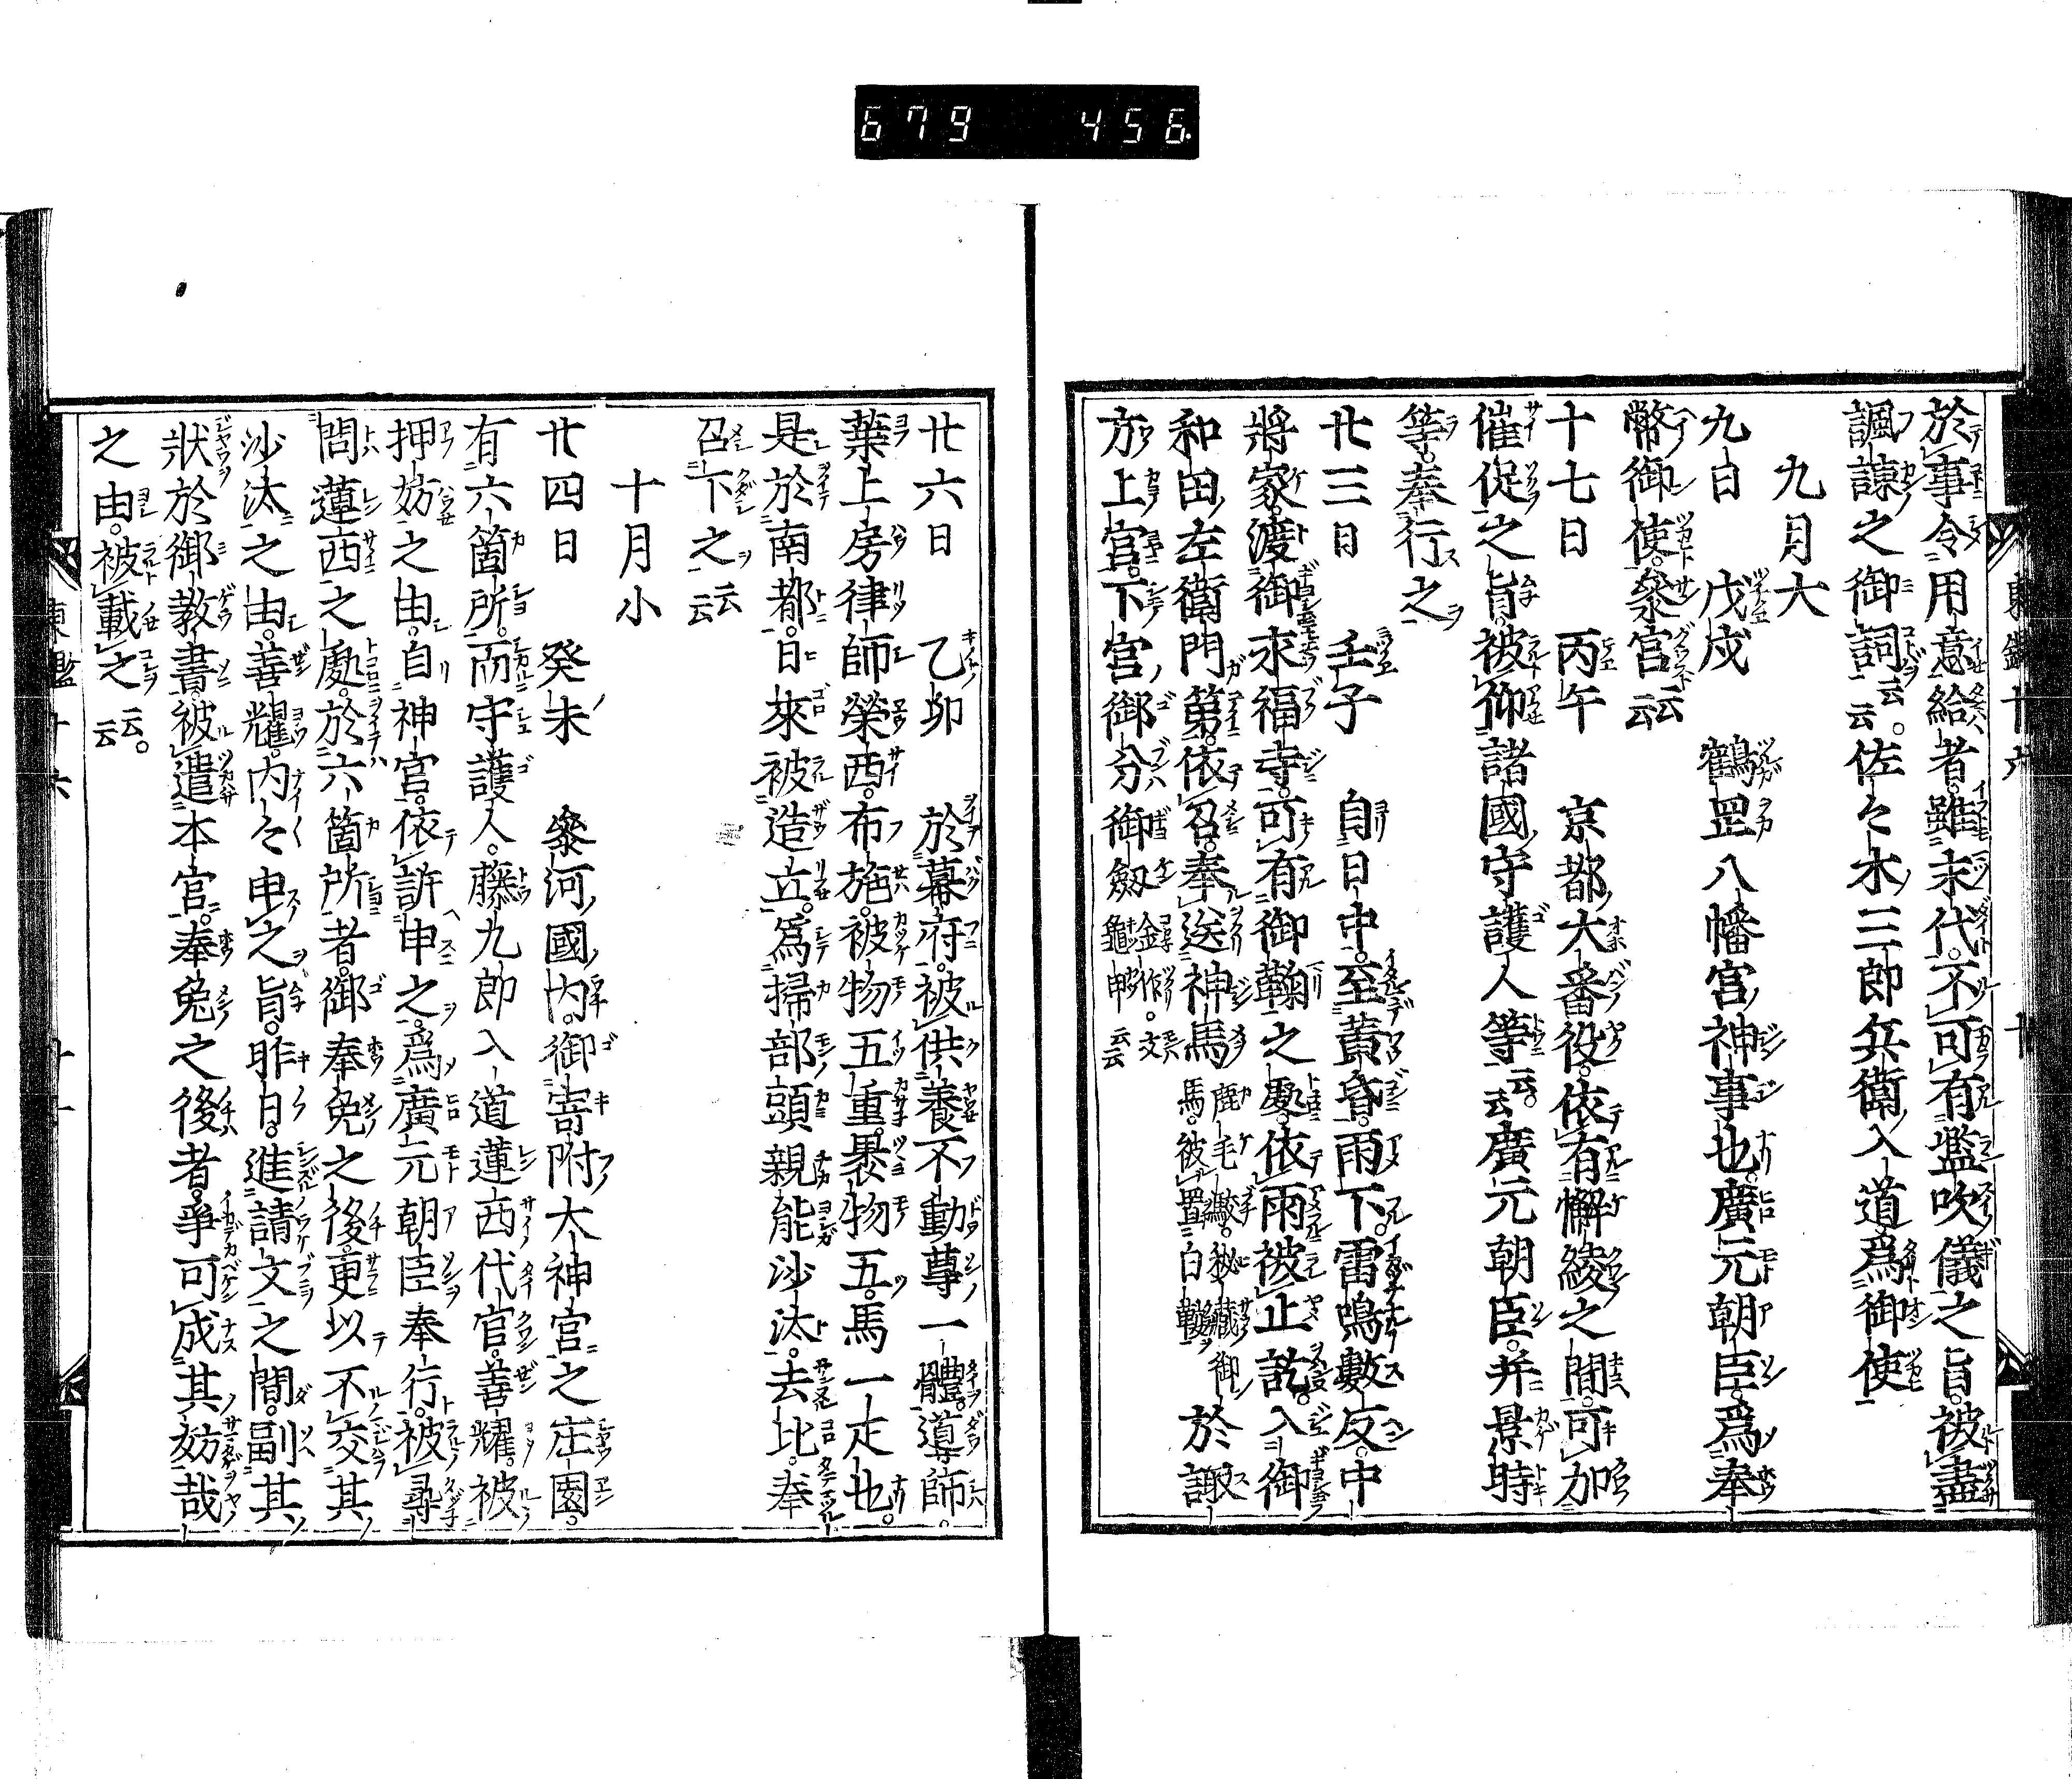 679 456
於事令用意給者雖末代。不可有濫吹儀之旨。被盡
諷諌之御詞云云。佐々木三郎兵衛入道爲御使
九月大
九日 戊戌 鶴罡八幡宮神事也。廣元朝臣。爲奉
幣御使。參宮云云
十七日 丙午 京都大番役。依有懈緩之間。可加
催促之旨。被仰諸國守護人等云云。廣元朝臣。并景時
等。奉行之
廿三日 壬子 自日中。至黄昏。雨下。雷鳴數反。中
將家。渡御永福寺。可有御鞠之處。依雨被止訖。入御
和田左衛門第。依召。奉送神馬鹿毛駮。秘藏御馬。被置白鞍於諏
方上宮。下宮御分御劔金作。文龜甲云云
廿六日 乙卯 於幕府。被供養不動尊一體。導師。
葉上房律師榮西。布施。被物五重。裹物五。馬一疋也。
是於南都。日來被造立。爲掃部頭親能沙汰。去比。奉
召下之云云
十月小
廿四日 癸未 參河國内。御寄附太神宮之庄園。
有六箇所。而守護人。藤九郎入道蓮西代官。善耀。被
押妨之由。自神宮。依訴申之。爲廣元朝臣奉行。被尋
問蓮西之處。於六箇所者。御奉免之後。更以不交其
沙汰之由。善耀。内々申之旨。昨日。進請文之間。副其
狀於御教書。被遣本宮。奉免之後者。爭可成其妨哉
之由。被載之云云。
東鑑十六 十
東鑑十六 十一